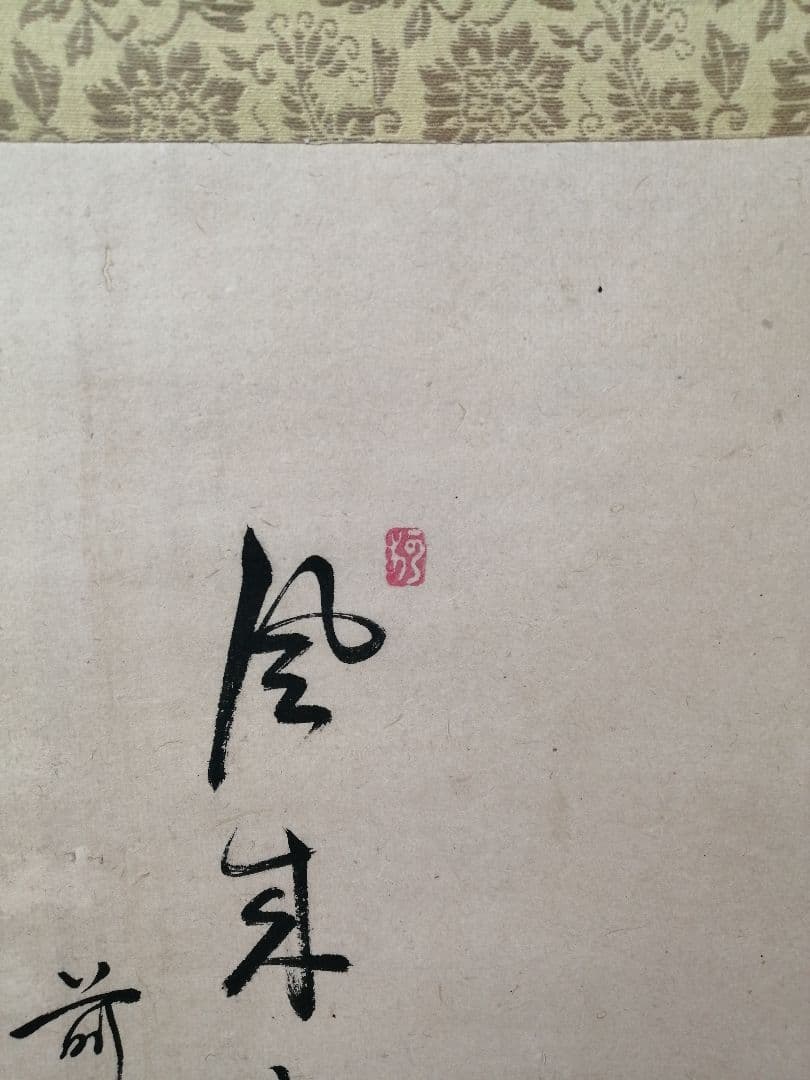 風来
前